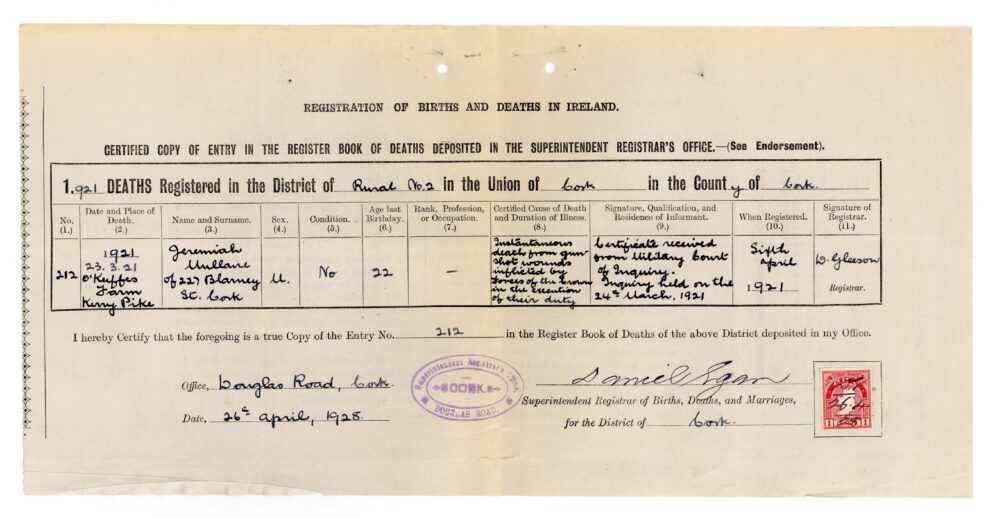 REGISTRATION OF BIRTHS AND DEATHS IN IRELAND.
CERTIFIED COPY OF ENTRY IN THE REGISTER BOOK OF DEATHS DEPOSITED IN THE SUPERINTENDENT REGISTRAR'S OFFICE.—(See Endorsement).
1.921 DEATHS Registered in the District of Rural No. 2 in the Union of Cork in the County of Cork.
No. (1.)
Date and Place of Death. (2.)
Name and Surname. (3.)
Sex. (4.)
Condition. (5.)
Age last Birthday. (6.)
Rank, Profession, or Occupation. (7.)
Certified Cause of Death and Duration of Illness. (8.)
Signature, Qualification, and Residence of Informant. (9.)
When Registered. (10.)
Signature of Registrar. (11.)
212
1921
23.3.21
O'Keeffes
Farm
Kerry Pike
Jeremiah
Mullane
of 227 Blarney
St. Cork
M.
No
22
—
Instantaneous
death from gun-
shot wounds
inflicted by
Forces of the Crown
in the execution
of their duty
Certificate received
from Military Court
of Inquiry.
Inquiry held on the
24th March, 1921
Sixth
April
1921
D. Gleeson
Registrar.
I hereby Certify that the foregoing is a true Copy of the Entry No. 212 in the Register Book of Deaths of the above District deposited in my Office.
Office, Douglas Road, Cork.
Date, 26th April, 1928.
Superintendent Registrar's Office
CORK
DOUGLAS ROAD.
Daniel Egan
Superintendent Registrar of Births, Deaths, and Marriages,
for the District of Cork.
1 1